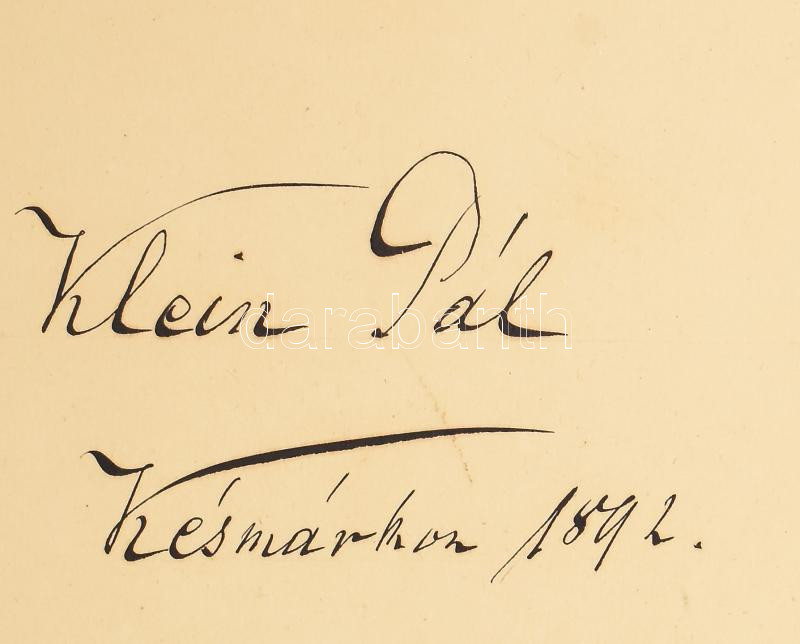 Klein Pál
darabanth
Késmárkon 1892.